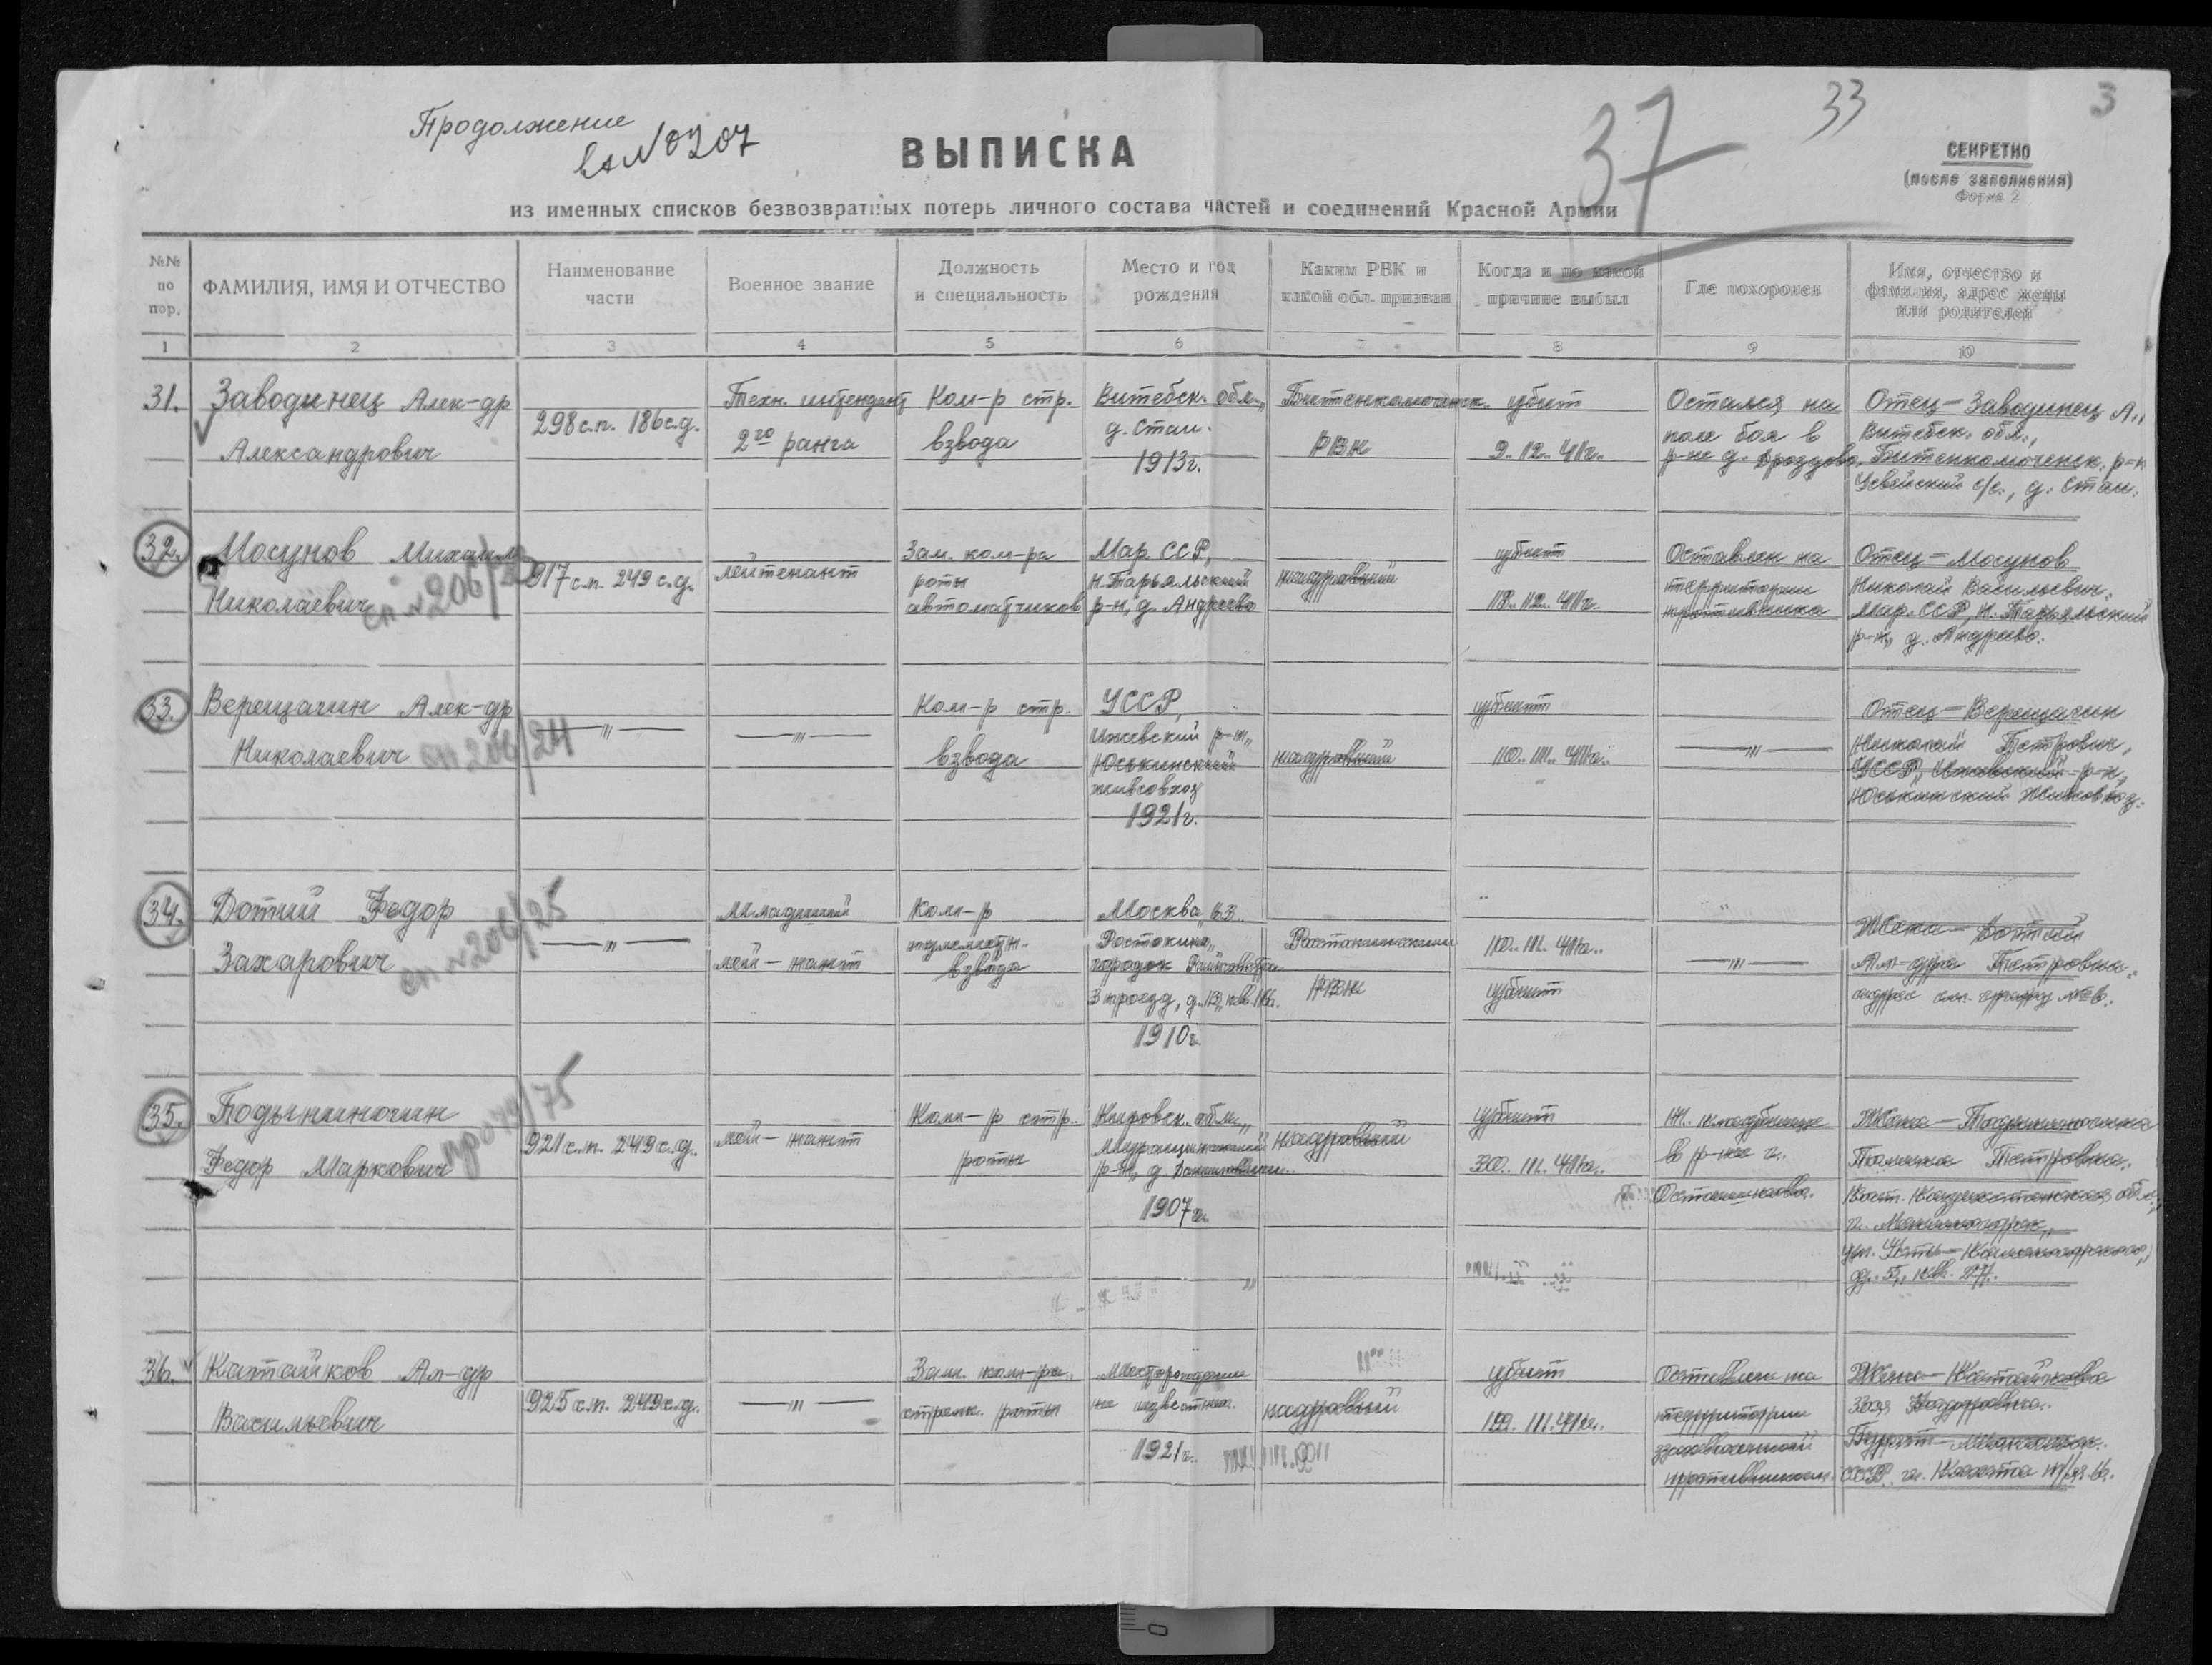 Продолжение
вх № 0207
37
33
3
ВЫПИСКА
СЕКРЕТНО
(после заполнения)
Форма 2
из именных списков безвозвратных потерь личного состава частей и соединений Красной Армии
№№ по пор.
ФАМИЛИЯ, ИМЯ И ОТЧЕСТВО
Наименование части
Военное звание
Должность и специальность
Место и год рождения
Каким РВК и какой обл. призван
Когда и по какой причине выбыл
Где похоронен
Имя, отчество и фамилия, адрес жены или родителей
1 2 3 4 5 6 7 8 9 10
31.
Заводинец Алек-др
Александрович
298 с.п. 186 с.д.
Техн. интендант
2го ранга
Ком-р стр.
взвода
Витебск. обл.,
д. Стаи.
1913г.
РВК
убит
9.12.41г.
Остался на
поле боя в
р-не д. Дроздово.
Отец-Заводинец А.,
Витебск. обл.,
р-н
с/с., д. Стаи.
32.
Мосунов Михаил
Николаевич
сп №206/
917 с.п. 249 с.д.
лейтенант
Зам. ком-ра
роты
автоматчиков
Мар. ССР,
Н.Тарьяльский
р-н, д. Андреево
кадровый
убит
Оставлен на
территории
противника
Отец-Мосунов
Николай Васильевич.
Мар. ССР, Н. Тарьяльский
р-н, д. Андреево.
33.
Верещагин Алек-др
Николаевич
сп 206/24
—"—
—"—
Ком-р стр.
взвода
УССР,
Ижевский р-н,
Юськинский
живсовхоз
1921г.
кадровый
убит
—"—
Отец-Верещагин
Николай Петрович,
УССР, Ижевский р-н,
Юськинский живсовхоз.
34.
Дотий Федор
Захарович
сп №206/25
—"—
младший
лей-нант
Ком-р
пулеметн.
взвода
Москва, 63
Ростокино,
городок
3 проезд, д. 13, кв. 16.
1910г.
Ростокинским
РВК
убит
—"—
Жена-Дотий
Петровна.
адрес см. графу №6.
35.
Подыниногин
Федор Маркович
/75
921 с.п. 249 с.д.
лей-нант
Ком-р стр.
роты
Кировск. обл.,
р-н, д.
1907г.
кадровый
убит
Н. кладбище
в р-не г.
Осташково.
Жена-
Петровна.
Вост. Казахстанская обл.,
г.
ул. Усть-Каменогорская,
д. 55, кв.
36.
Катайков Ал-др
Васильевич
925 с.п. 249 с.д.
—"—
Зам. ком-ра
стрелк. роты
Месторождение
не известно.
1921г.
кадровый
убит
Оставлен на
территории
занятой
противником.
Жена-Катайкова
Зоя
Бурят-Монгольск.
ССР, г. Кяхта